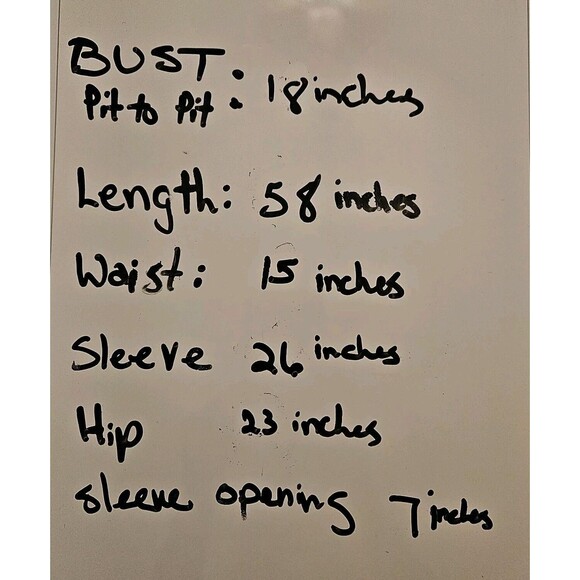 BUST:
Pit to Pit: 18 inches
Length: 58 inches
Waist: 15 inches
Sleeve 26 inches
Hip 23 inches
sleeve opening 7 inches